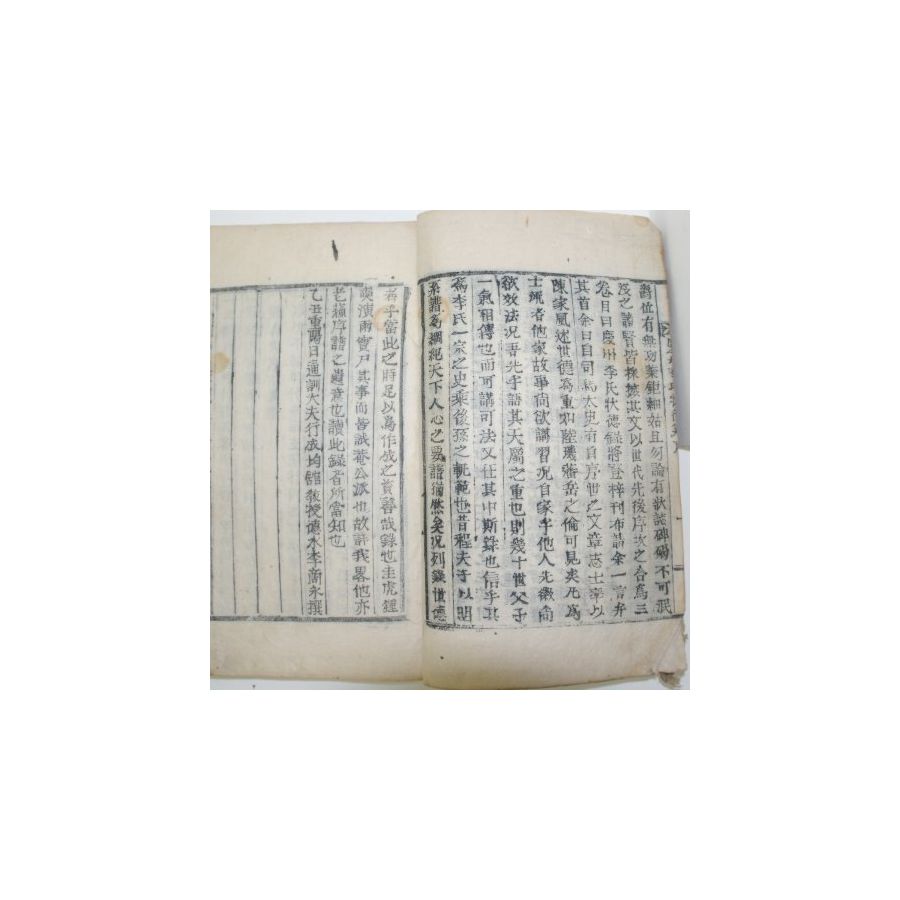 爵位有無功業鉅細姑且勿論有狀誌碑碣不可泯
沒之諸賢皆採摭其文以世代先後序次之合爲三
卷目曰慶州李氏狀德錄將登梓刊布請余一言弁
其首余曰自司馬太史有自序世之文章志士率以
陳家風述世德爲重如陸璣潘岳之倫可見矣凡爲
士流者他家故事尙欲講習況自家乎他人先徽尙
欲效法況吾先乎語其大屬之重也則幾十世父子
一氣相傳也而可講可法又在其中斯錄也信乎其
爲李氏一家之史乘後孫之軌範也昔程夫子以明
系譜爲綱紀天下人心之要譜猶然矣況列錄世德
者乎當此之時足以爲作成之資善哉錄也圭虎鍾
演雨實尸其事而皆誠菴公派也故詳我畧他亦
老蘇序譜之遺意也讀此錄者所當知也
乙丑重陽日通訓大夫行成均館敎授德水李 永撰